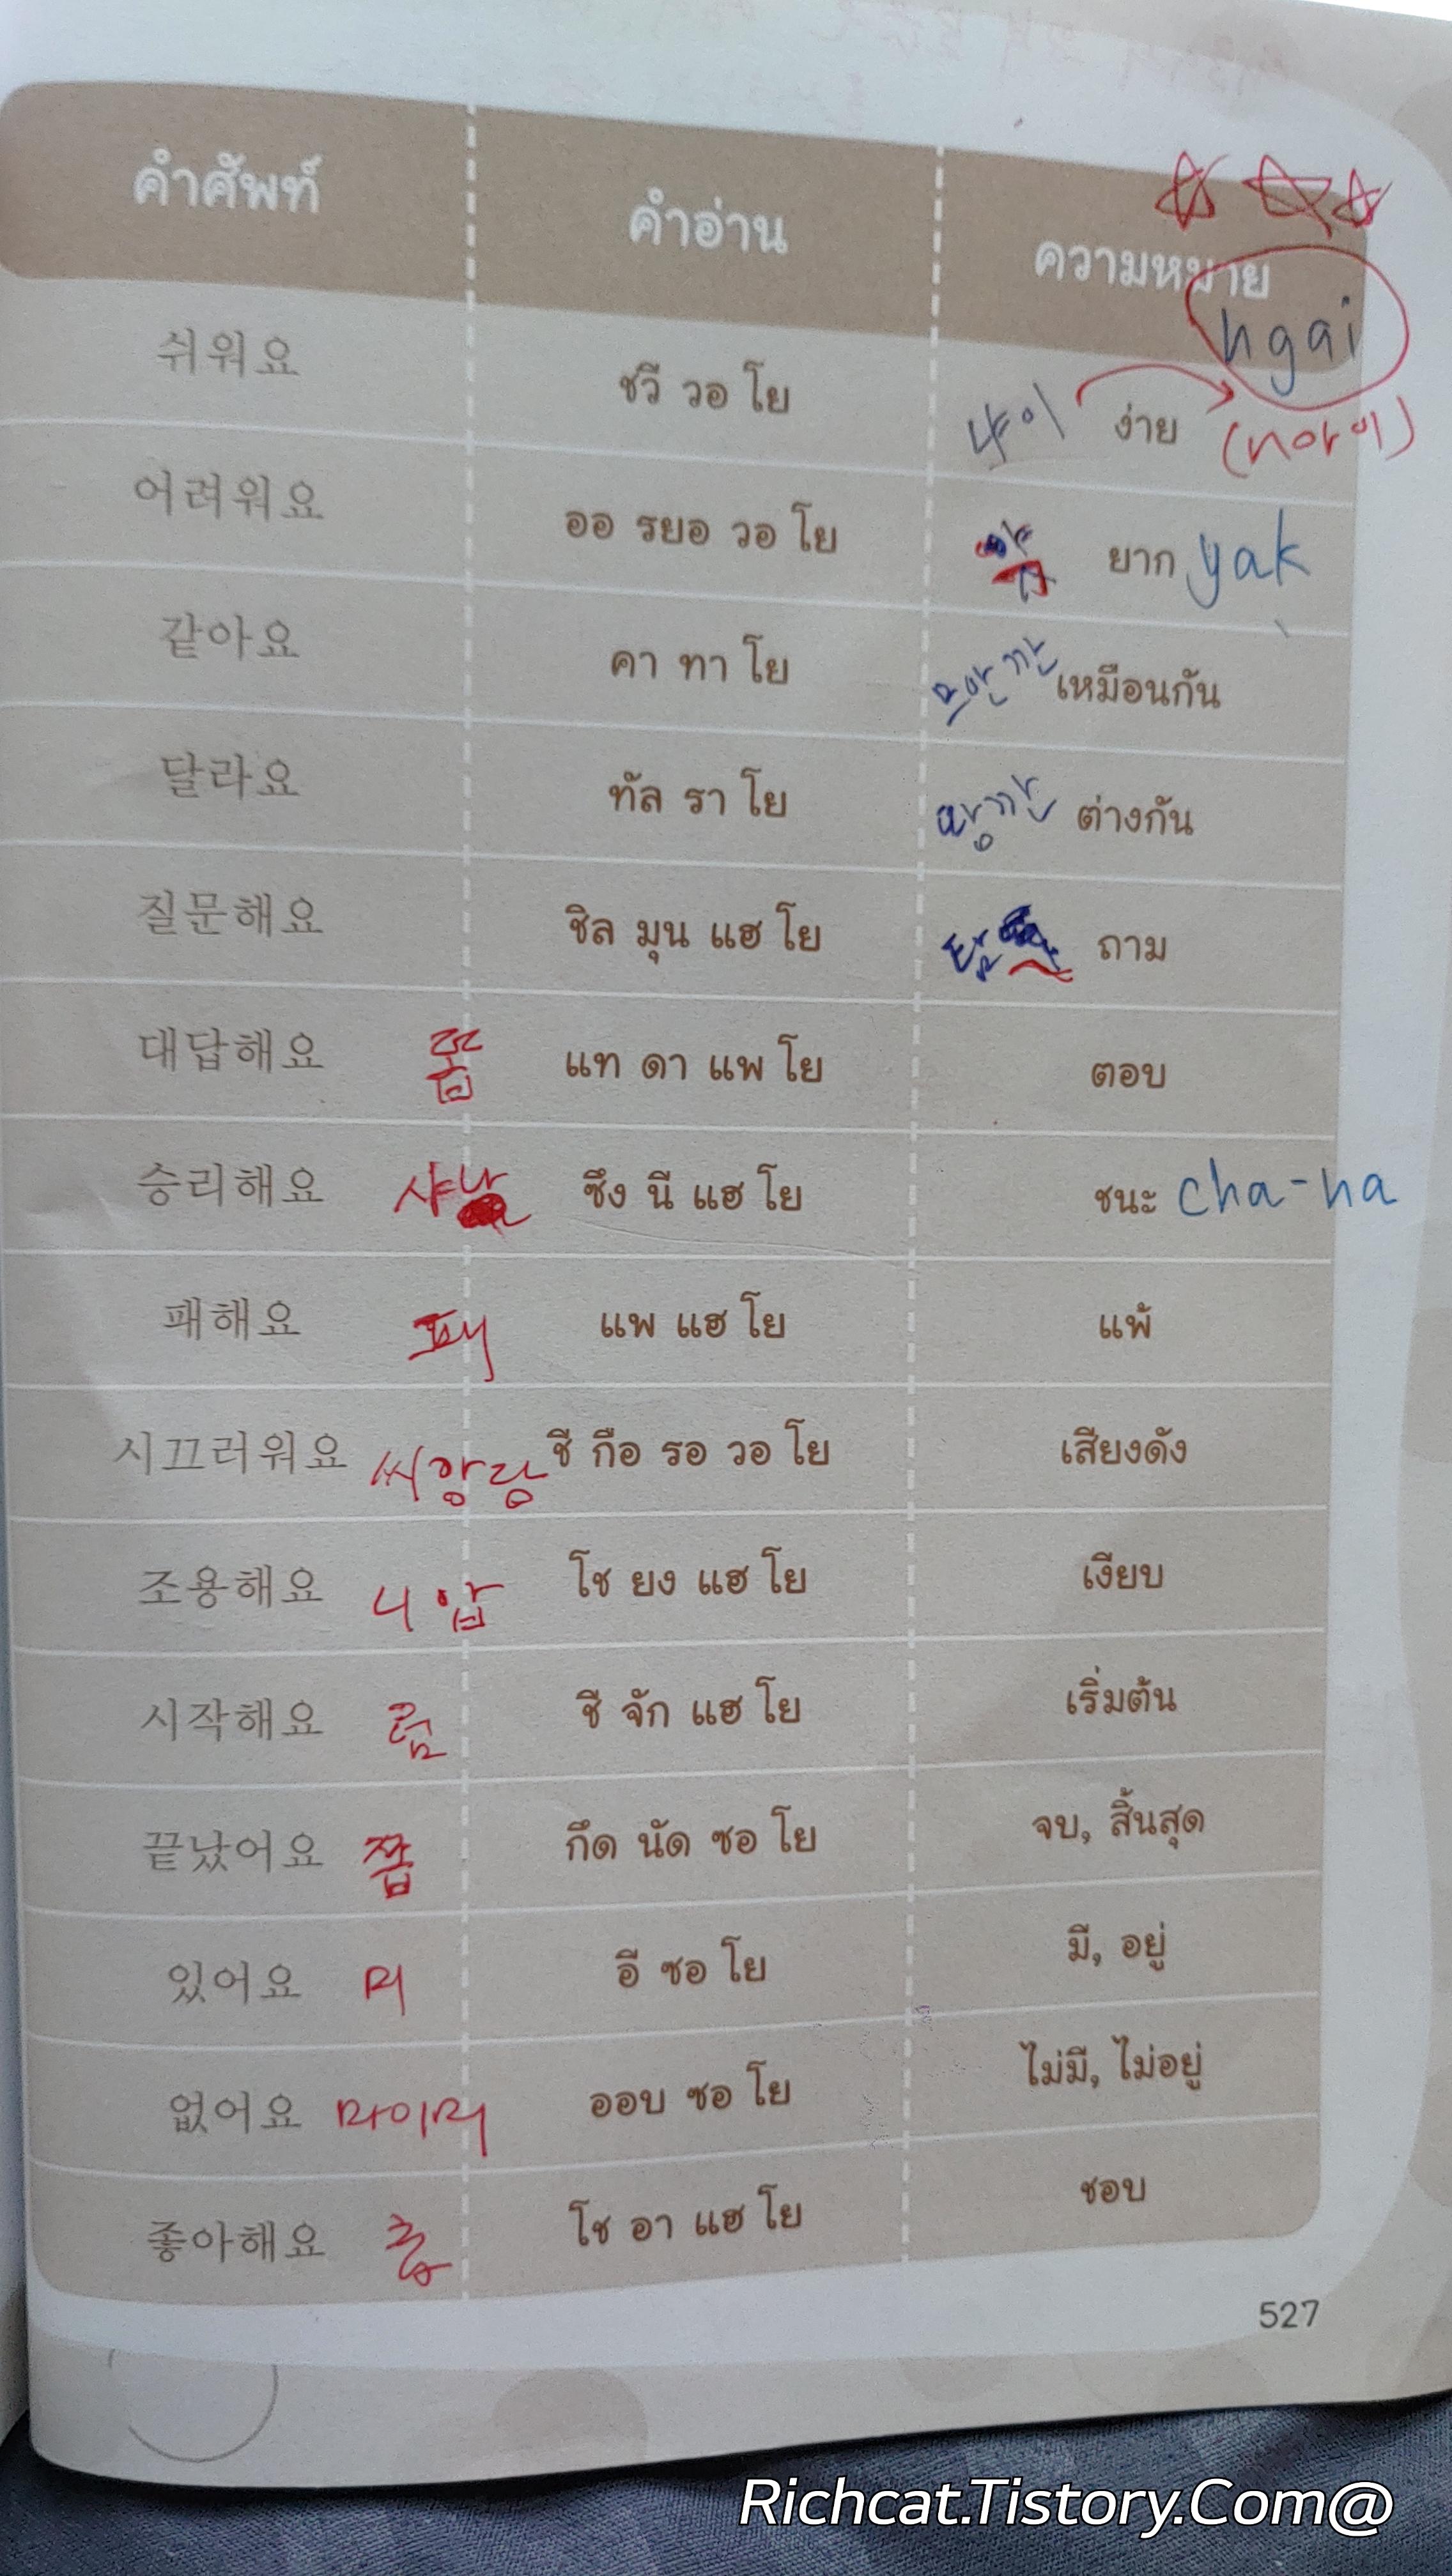 คำศัพท์ คำอ่าน ความหมาย
ngai
쉬워요 ชวี วอ โย 나이 ง่าย (กอาอิ)
어려워요 ออ รยอ วอ โย ยาก yak
같아요 คา ทา โย 므안깐 เหมือนกัน
달라요 ทัล รา โย 땅깐 ต่างกัน
질문해요 ชิล มุน แฮ โย ถาม
대답해요 쫍 แท ดา แพ โย ตอบ
승리해요 ซึง นี แฮ โย ชนะ cha-na
패해요 패 แพ แฮ โย แพ้
시끄러워요 씨앙당 ชี กือ รอ วอ โย เสียงดัง
조용해요 니얍 โช ยง แฮ โย เงียบ
시작해요 ชี จัก แฮ โย เริ่มต้น
끝났어요 쫍 กึด นัด ซอ โย จบ, สิ้นสุด
있어요 미 อี ซอ โย มี, อยู่
없어요 마이미 ออบ ซอ โย ไม่มี, ไม่อยู่
좋아해요 โช อา แฮ โย ชอบ
527
Richcat.Tistory.Com@